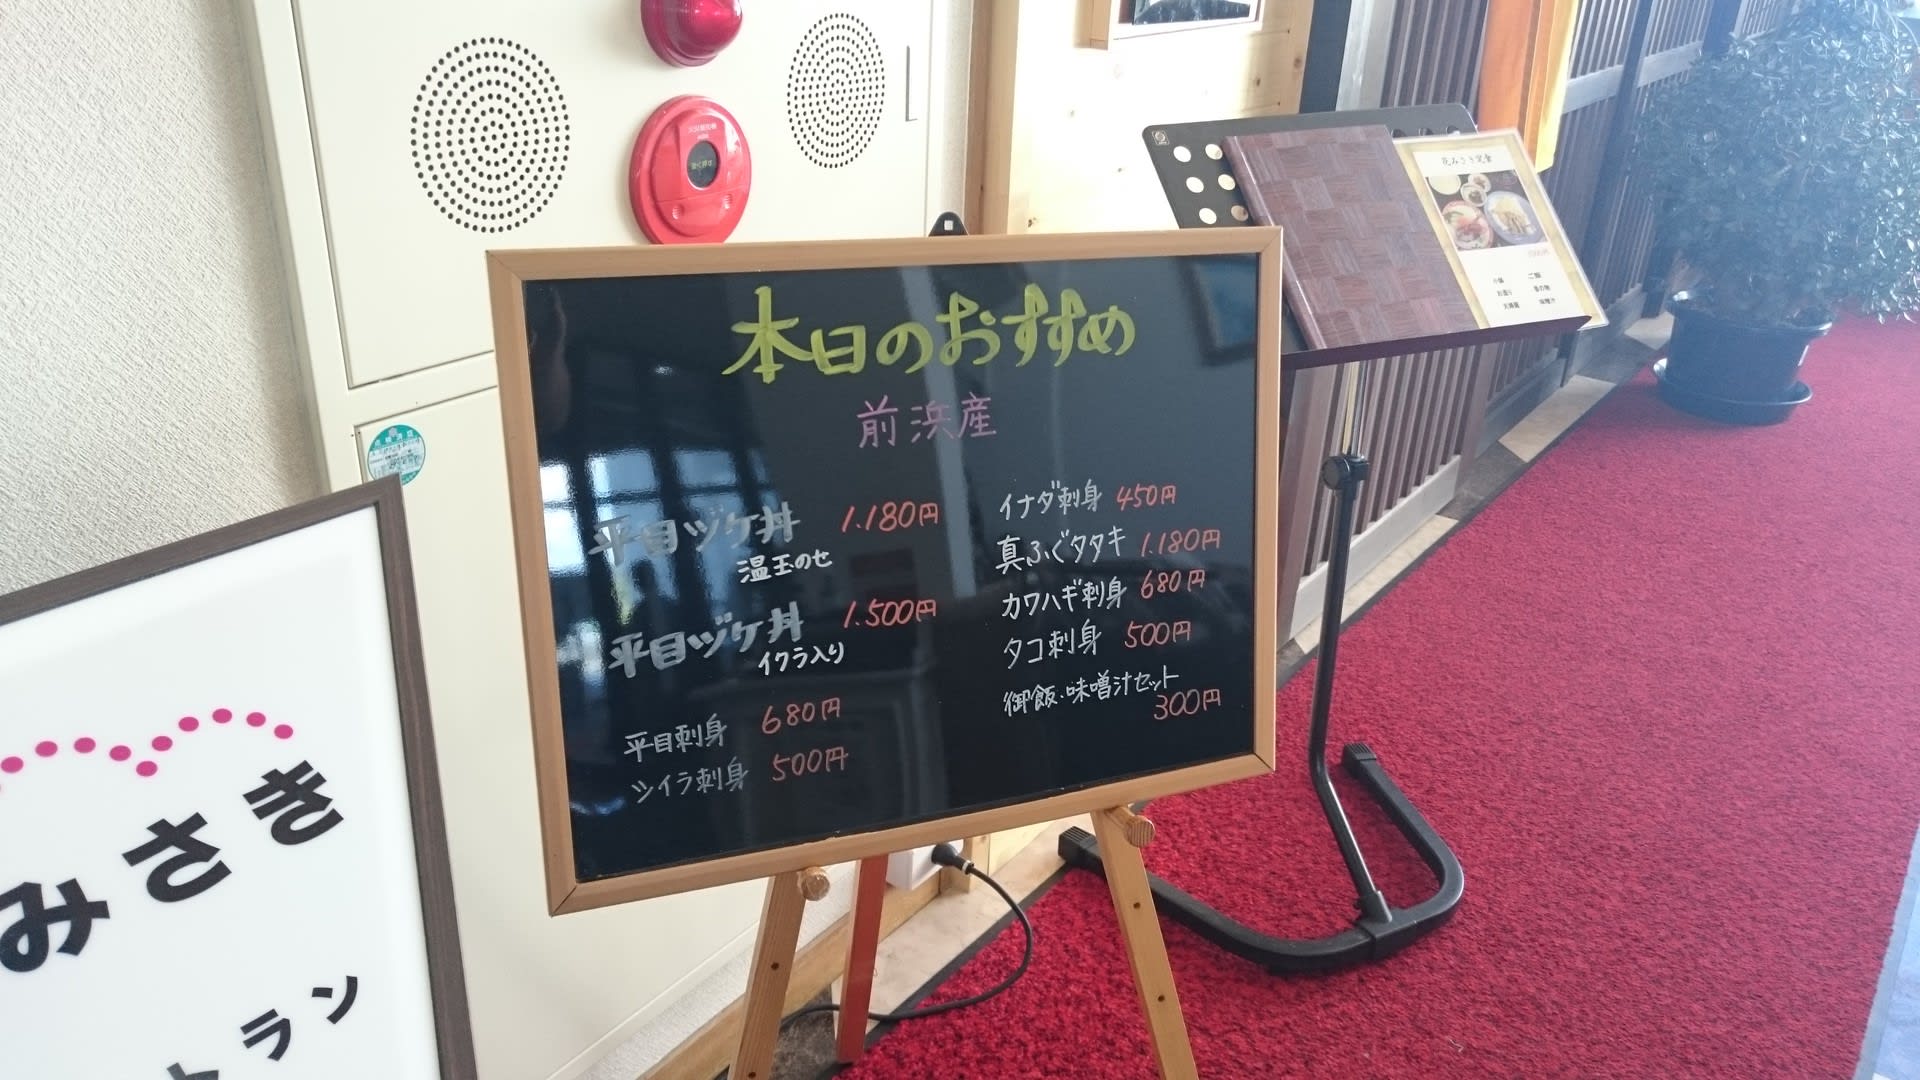 本日のおすすめ
前浜産
平目ヅケ丼 1.180円
温玉のせ
平目ヅケ丼 1.500円
イクラ入り
平目刺身 680円
シイラ刺身 500円
イナダ刺身 450円
真ふぐタタキ 1.180円
カワハギ刺身 680円
タコ刺身 500円
御飯・味噌汁セット
300円
みさき
トラン
花みさき定食
小鉢 ご飯
お造り 香の物
天婦羅 味噌汁
強く押す